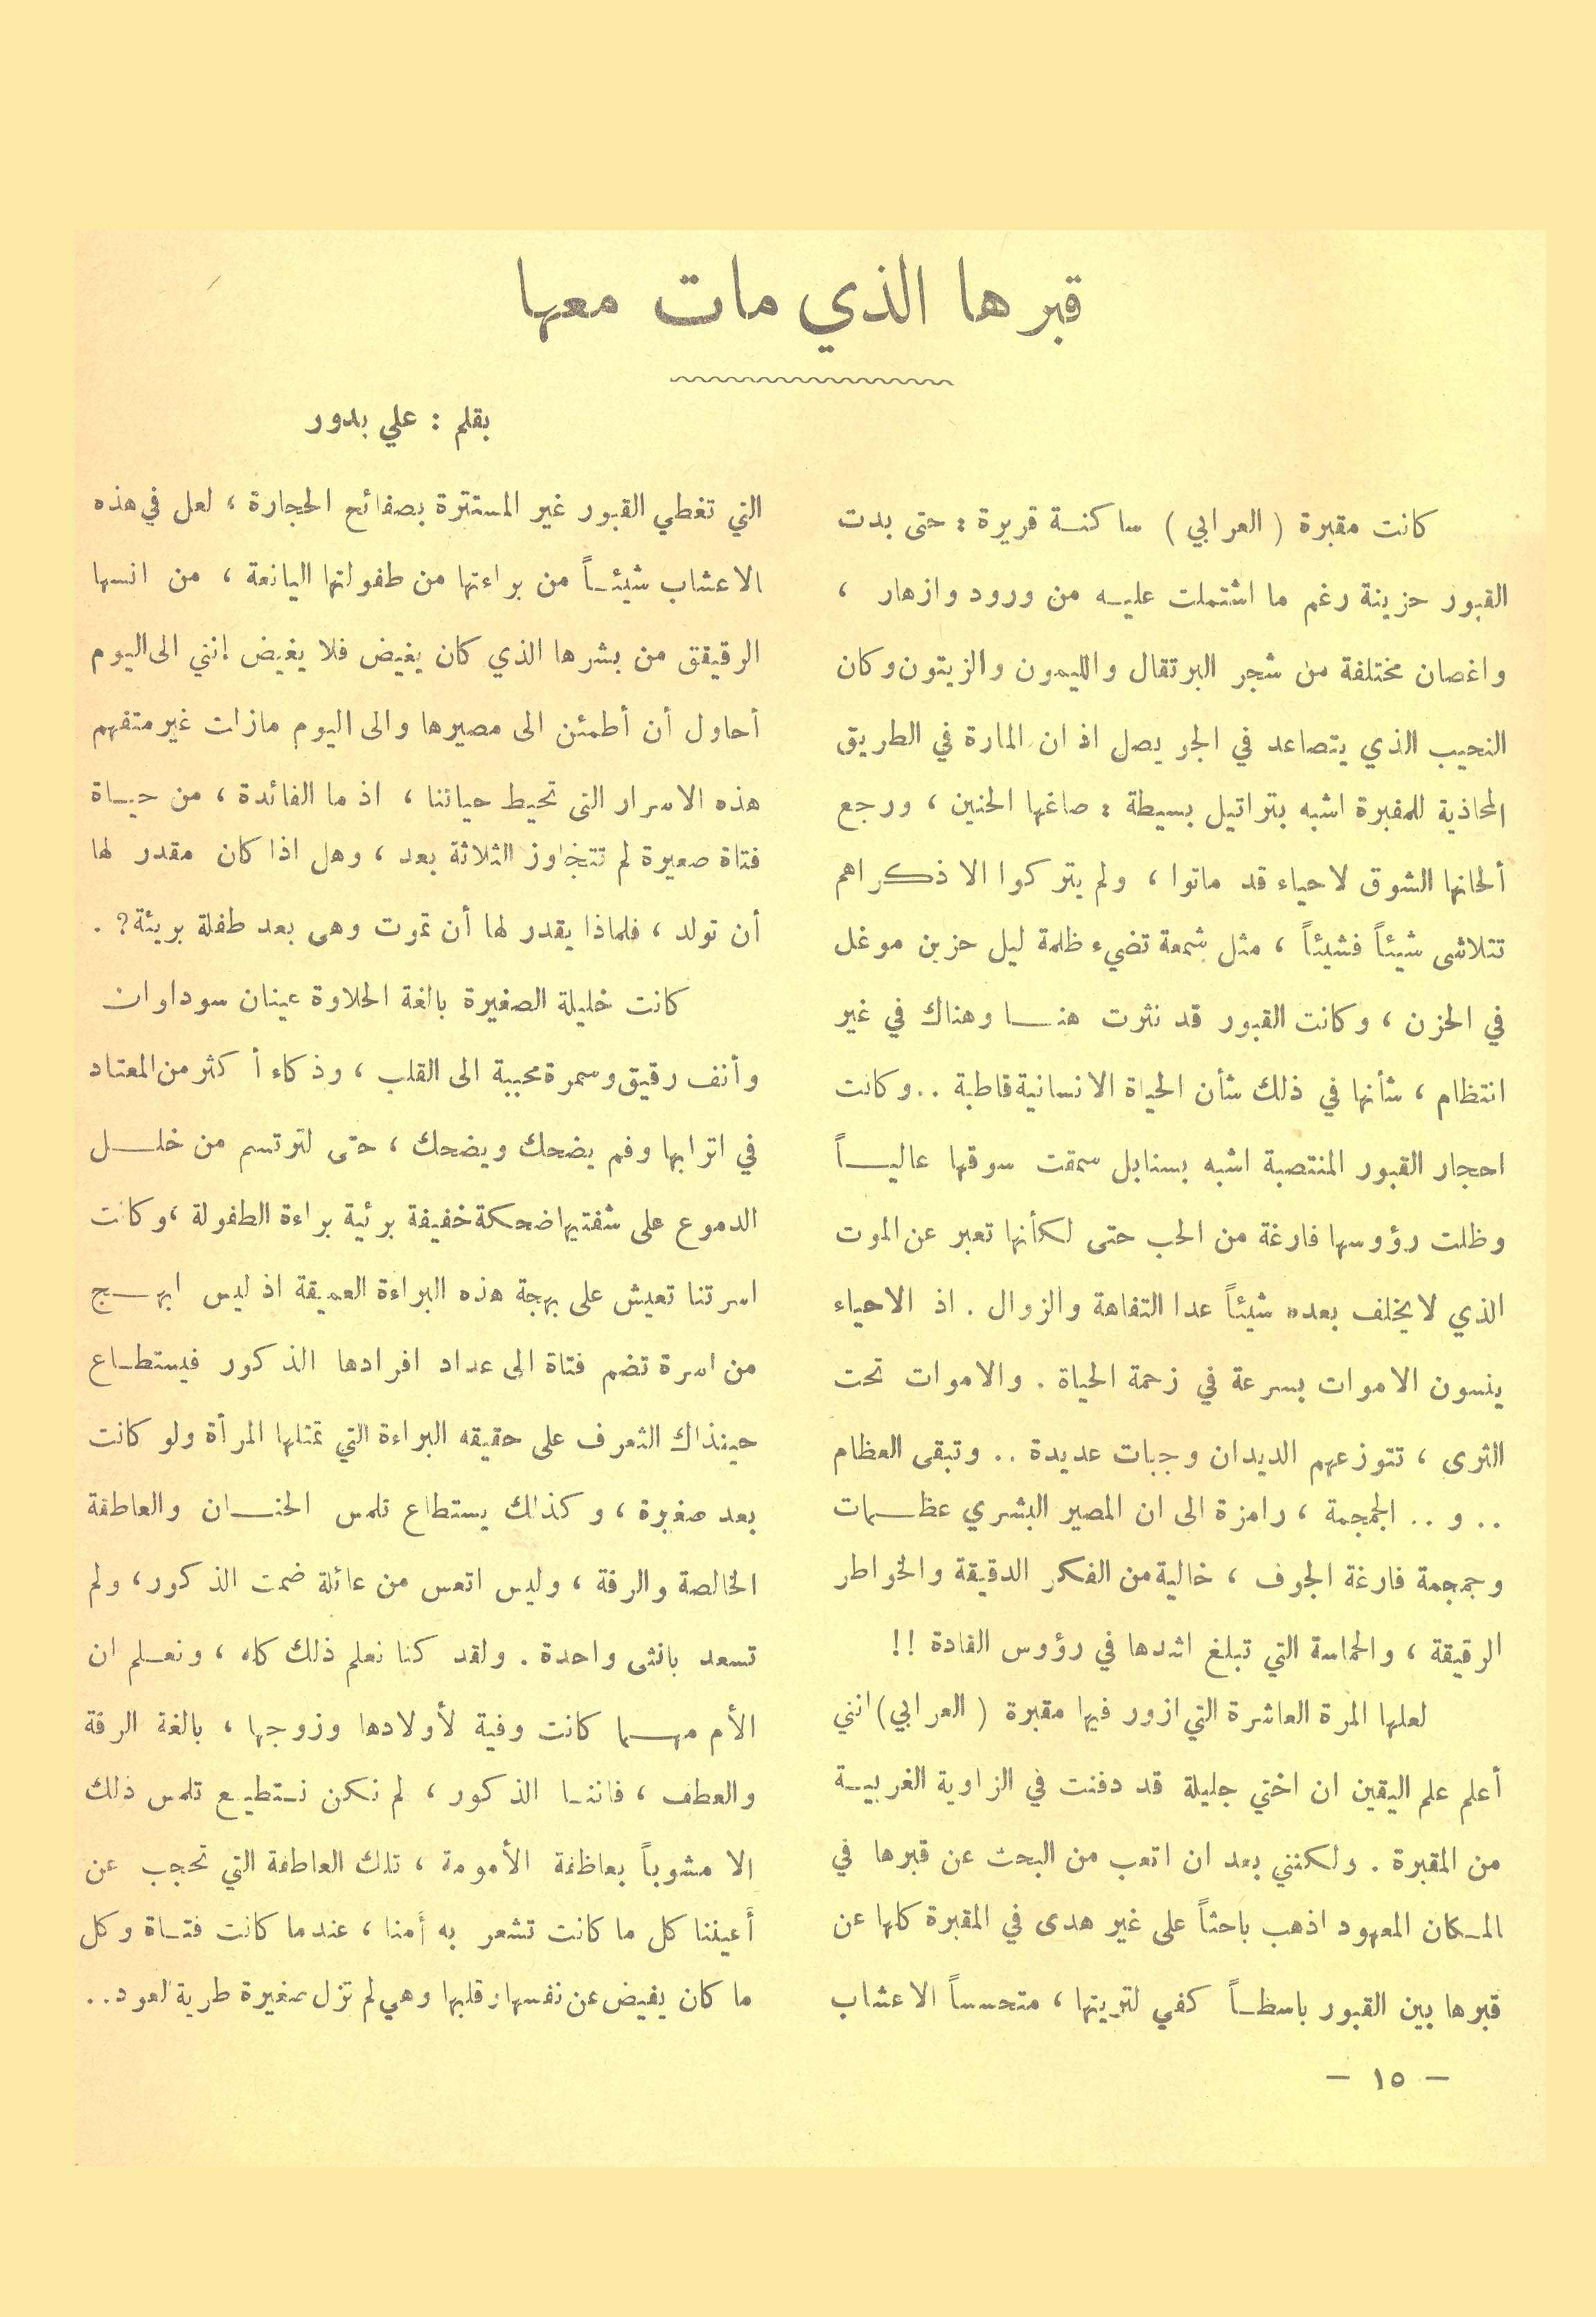 قبرها الذي مات معها
بقلم : علي بدور
كانت مقبرة ( العرابي ) ساكنة قريرة : حتى بدت
القبور حزينة رغم ما اشتملت عليه من ورود وازهار ،
واغصان مختلفة من شجر البرتقال والليمون والزيتون وكان
النحيب الذي يتصاعد في الجو يصل اذ ان المارة في الطريق
المحاذية للمقبرة اشبه بتراتيل بسيطة : صاغها الحنين ، ورجع
ألحانها الشوق لاحياء قد ماتوا ، ولم يتركوا الا ذكراهم
تتلاشى شيئاً فشيئاً ، مثل شمعة تضيء ظلمة ليل حزين موغل
في الحزن ، وكانت القبور قد نثرت هنا وهناك في غير
انتظام ، شأنها في ذلك شأن الحياة الانسانية قاطبة .. وكانت
احجار القبور المنتصبة اشبه بسنابل سمقت سوقها عالياً
وظلت رؤوسها فارغة من الحب حتى لكأنها تعبر عن الموت
الذي لا يخلف بعده شيئاً عدا التفاهة والزوال . اذ الاحياء
ينسون الاموات بسرعة في زحمة الحياة . والاموات تحت
الثرى ، تتوزعهم الديدان وجبات عديدة .. وتبقى العظام
.. و .. الجمجمة ، رامزة الى ان المصير البشري عظمات
وجمجمة فارغة الجوف ، خالية من الفكر الدقيقة والخواطر
الرقيقة ، والحماسة التي تبلغ اشدها في رؤوس القادة !!
لعلها المرة العاشرة التي ازور فيها مقبرة ( العرابي ) انني
أعلم علم اليقين ان اختي جليلة قد دفنت في الزاوية الغربية
من المقبرة . ولكنني بعد ان اتعب من البحث عن قبرها في
المكان المعهود اذهب باحثاً على غير هدى في المقبرة كلها عن
قبرها بين القبور باسطاً كفي لتربتها ، متحسساً الاعشاب
التي تغطي القبور غير المستترة بصفائح الحجارة ، لعل في هذه
الاعشاب شيئاً من براءتها من طفولتها اليانعة ، من انسها
الرقيقق من بشرها الذي كان يغيض فلا يغيض إنني الى اليوم
أحاول أن أطمئن الى مصيرها والى اليوم مازات غير متفهم
هذه الاسرار التى تحيط حياتنا ، اذ ما الفائدة ، من حياة
فتاة صغيرة لم تتجاوز الثلاثة بعد ، وهل اذا كان مقدر لها
أن تولد ، فلماذا يقدر لها أن تموت وهى بعد طفلة بريئة؟ .
كانت خليلة الصغيرة بالغة الحلاوة عينان سوداوان
وأنف رقيق وسمرة محببة الى القلب ، وذكاء أكثر من المعتاد
في اترابها وفم يضحك ويضحك ، حتى لترتسم من خلل
الدموع على شفتيها ضحكة خفيفة برئية براءة الطفولة ، وكانت
اسرتنا تعيش على بهجة هذه البراءة العميقة اذ ليس ابهج
من اسرة تضم فتاة الى عداد افرادها الذكور فيستطاع
حينذاك التعرف على حقيقه البراءة التي تمثلها المرأة ولو كانت
بعد صغيرة ، وكذلك يستطاع تلمس الحنان والعاطفة
الخالصة والرقة ، وليس اتعس من عائلة ضمت الذكور ، ولم
تسعد بانثى واحدة . ولقد كنا نعلم ذلك كله ، ونعلم ان
الأم مهما كانت وفية لأولادها وزوجها ، بالغة الرقة
والعطف ، فاننا الذكور ، لم نكن نستطيع تلمس ذلك
الا مشوباً بعاطفة الأمومة ، تلك العاطفة التي تحجب عن
أعيننا كل ما كانت تشعر به أمنا ، عندما كانت فتاة وكل
ما كان يفيض عن نفسها وقلبها وهي لم تزل صغيرة طرية العود ..
– ١٥ –